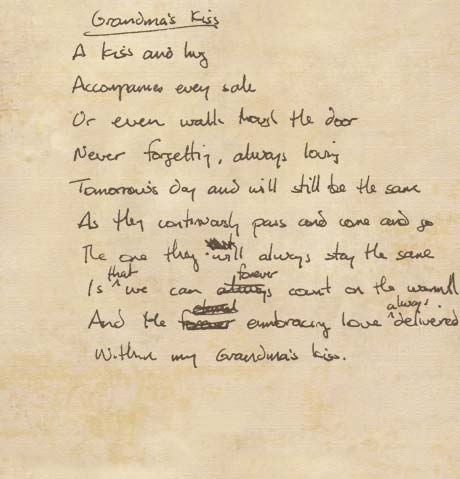 Grandma's Kiss
A kiss and hug
Accompanies every sale
Or even walk through the door
Never forgetting, always loving
Tomorrow's day and will still be the same
As they continuously pass and come and go
The one they will always stay the same
Is that we can always forever count on the warmth
And the forever eternal embracing love always delivered
Within my Grandma's kiss.